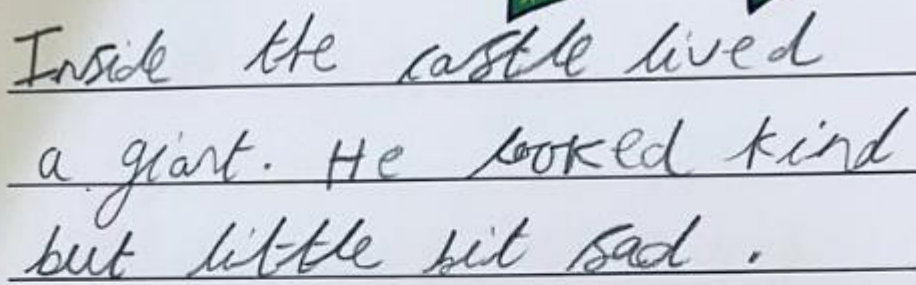 Inside the castle lived
a giant. He looked kind
but little bit sad.